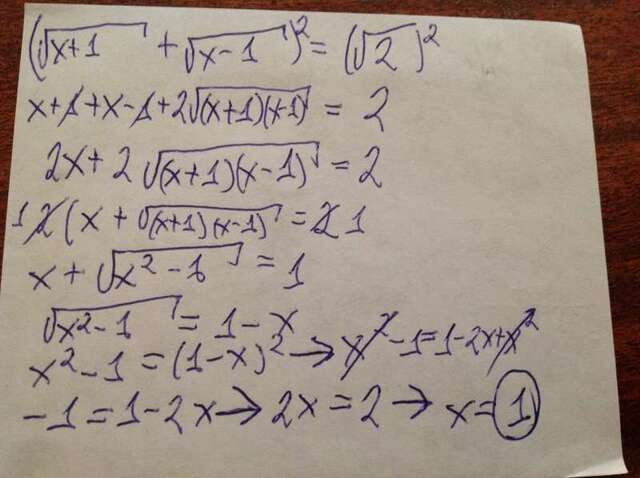 (√(x+1) + √(x-1))² = (√2)²
x+1+x-1+2√((x+1)(x-1)) = 2
2x+2√((x+1)(x-1)) = 2
1 2(x+√((x+1)(x-1)) = 2 1
x+√(x²-1) = 1
√(x²-1) = 1-x
x²-1 = (1-x)² → x²-1=1-2x+x²
-1=1-2x → 2x=2 → x=1